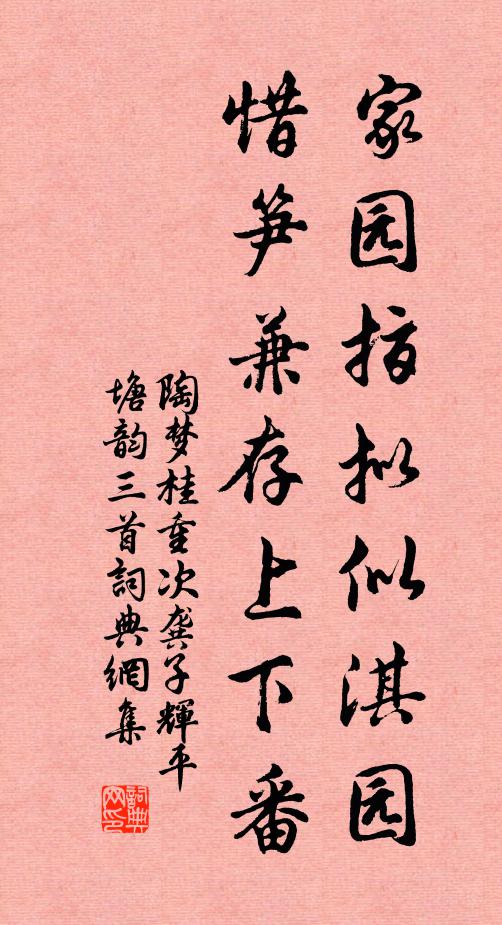 家园指拟似淇园
惜笋兼存上下番
陶梦桂重次龚子輝平
塘韵三首詞典網集
詞典网印